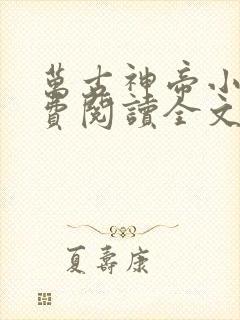 萬古神帝小
費閱讀全文
夏壽康